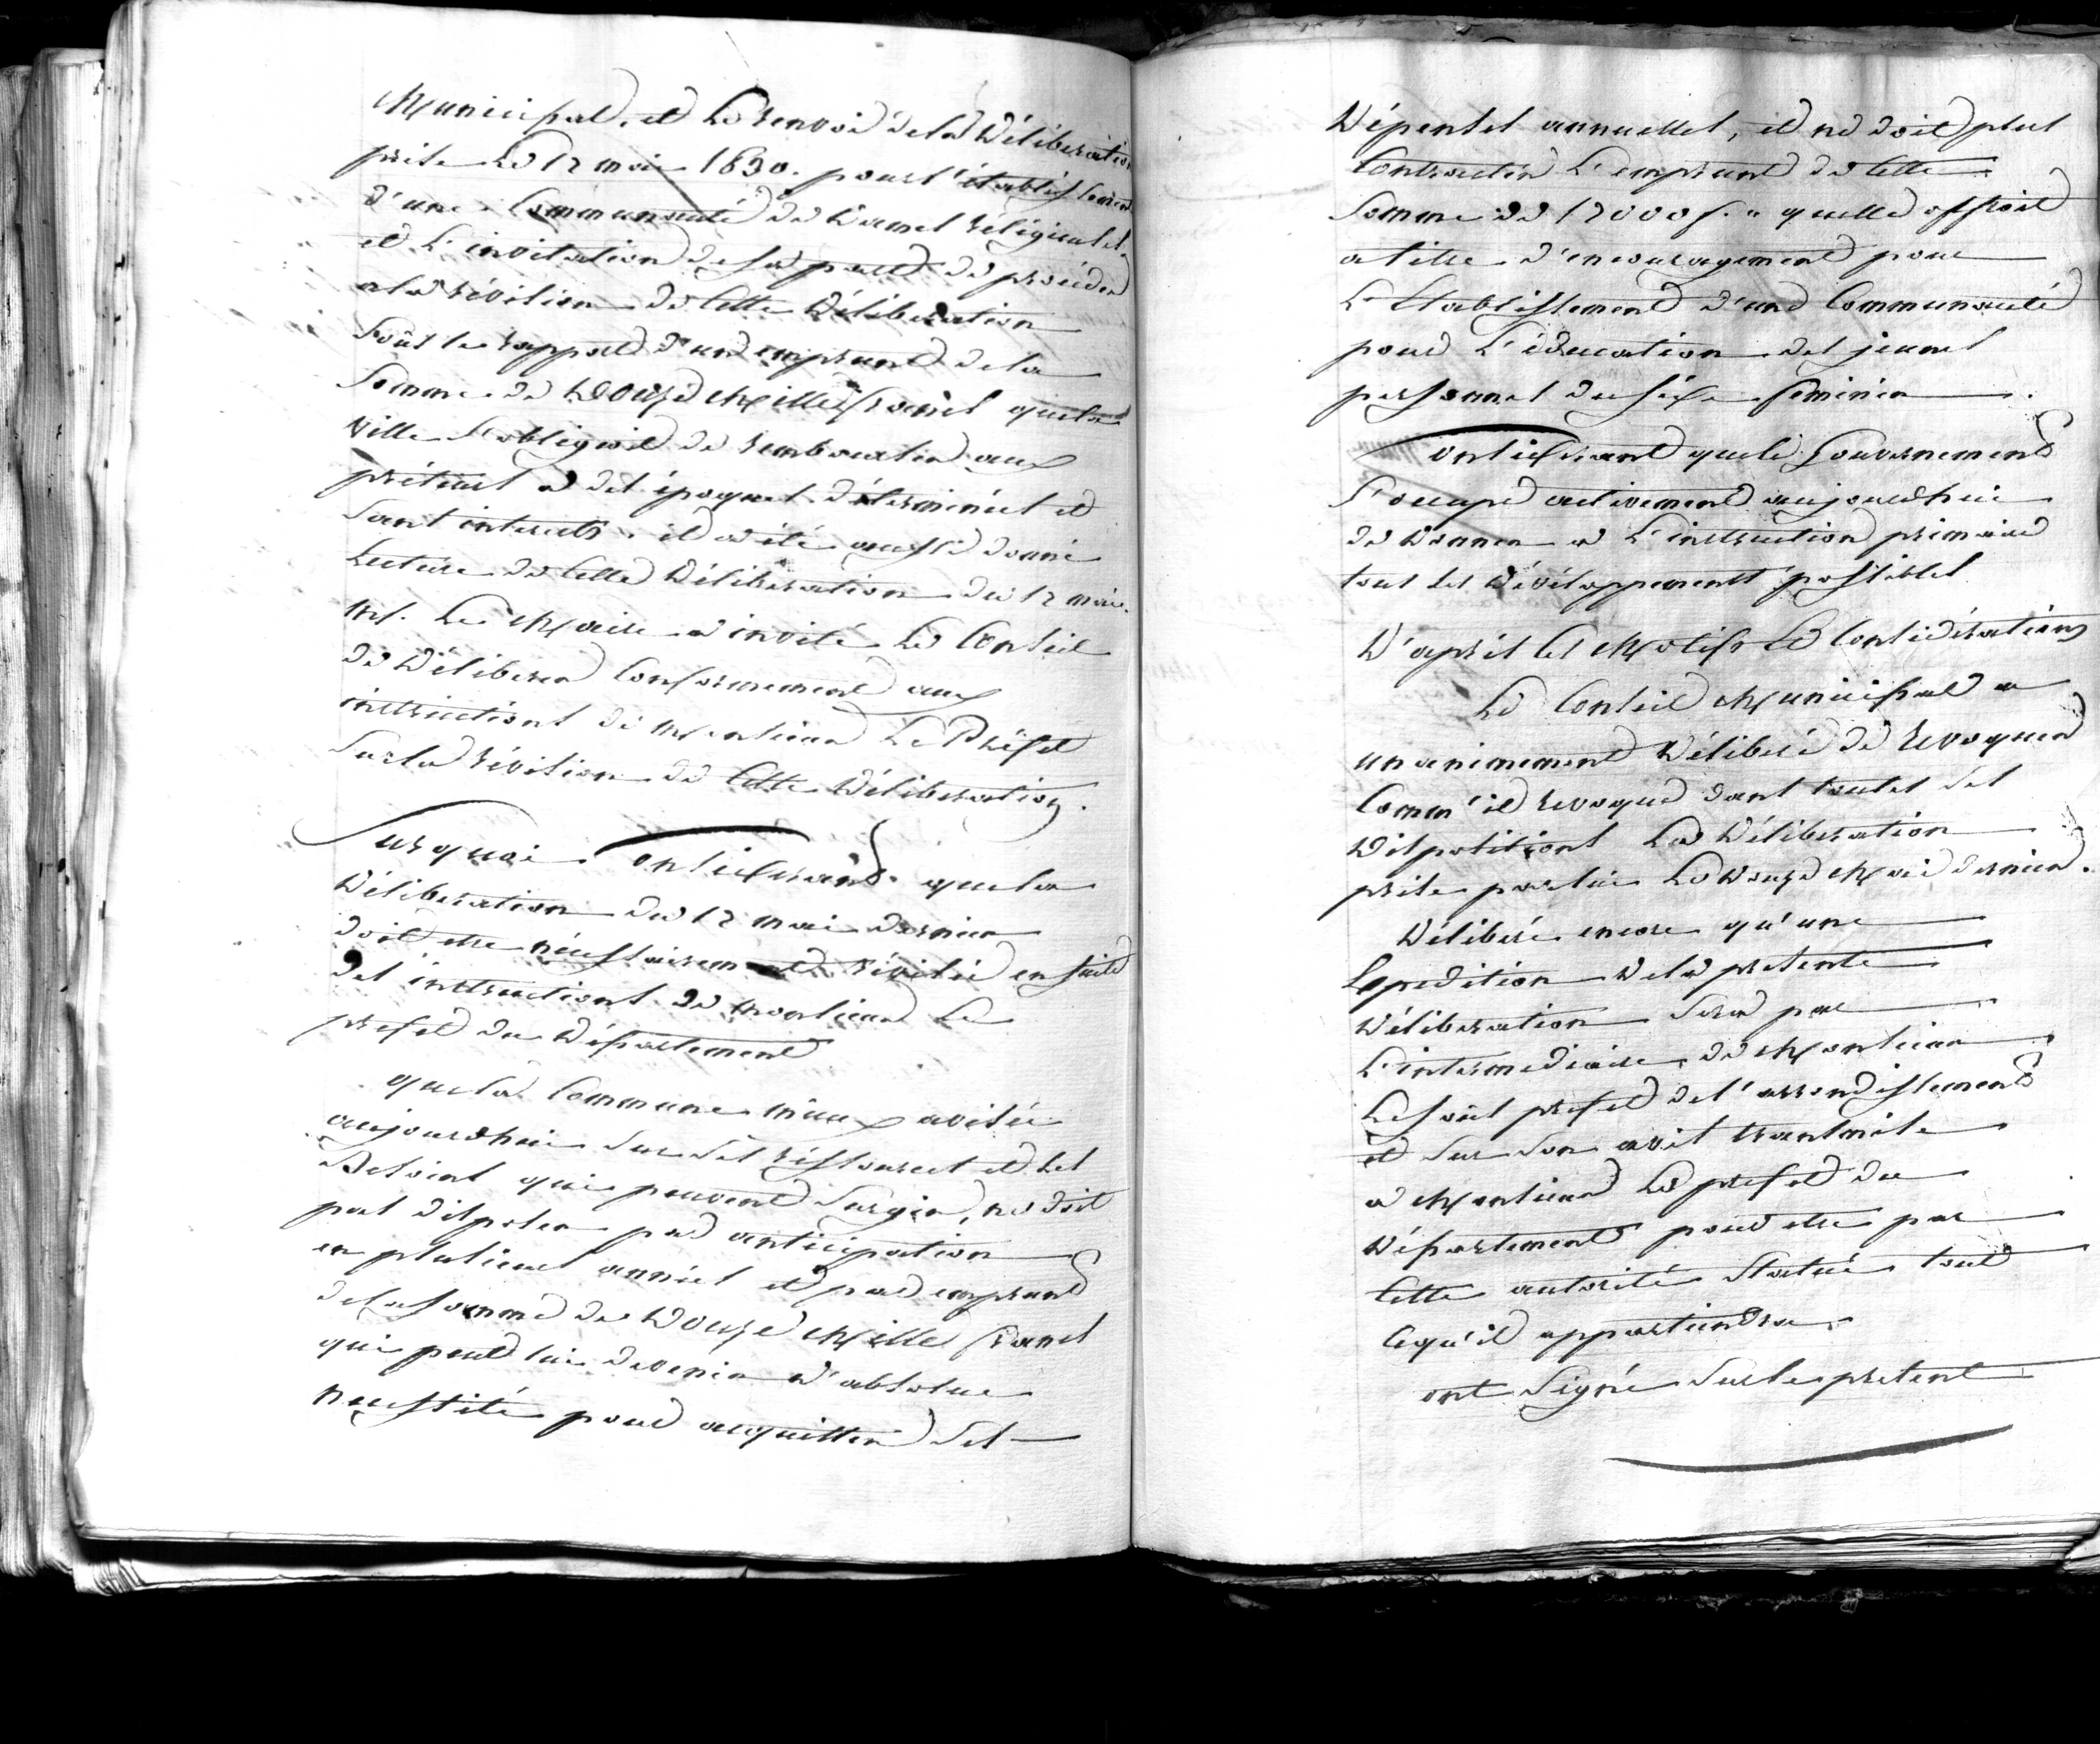 Municipal, et Le renvoi de la Délibération
prise Le 12 mai 1830. pour l'établissement
d'une Communauté de Dames Réligieuses,
et L'invitation de sa part de procéder
a la révision de Cette Délibération
sous le rapport d'un emprunt de la
Somme de Douze Mille francs que la
Ville S'obligeoit de rembourser aux
préteurs a des époques déterminées et
sans interets. il a été aussi donné
Lecture de Cette Délibération du 12 mai.
Mr. Le Maire a invité Le Conseil
de Déliberer Conformement aux
instructions de Monsieur Le Préfet
Sur la révision de Cette Délibération.
Sur quoi Considerant que la
Délibération du 12 mai dernier
doit etre nécessairement révisée en suite
des instructions de Monsieur Le
prefet du Département
que la Commune mieux avisée
aujourdhui Sur ses réssources et les
Besoins qui peuvent Surgir, ne doit
pas disposer par anticipation
en plusieurs années et par emprunt
de la somme de Douze Mille francs
qui peut lui devenir d'absolue
necessité pour acquitter ses
Dépenses annuelles, et ne doit plus
Contracter L'emprunt de Cette
Somme de 12000 f. " quelle offroit
a titre d'encouragement pour
L'Etablissement d'une Communauté
pour L'éducation des jeunes
personnes du séxe feminin.
Considerant que le Gouvernement
S'occupe activement aujourdhui
de Donner a L'instruction primaire
tous les Dévéloppements possibles
D'après Ces Motifs et Considérations
Le Conseil Municipal a
unanimement Déliberé de Revoquer
Comm'il revoque dans toutes ses
Dispositions La Délibération
prise par lui Le Douze Mai dernier.
Déliberé encore qu'une
Expedition De la presente
Délibération Sera par
L'intermediaire de Monsieur
Le sous prefet de l'arrondissement
et Sur Son avis transmise
a Monsieur Le prefet du
Département pour etre par
Cette autorité Statué tout
Cequ'il appartiendra.
ont Signé Sur le present